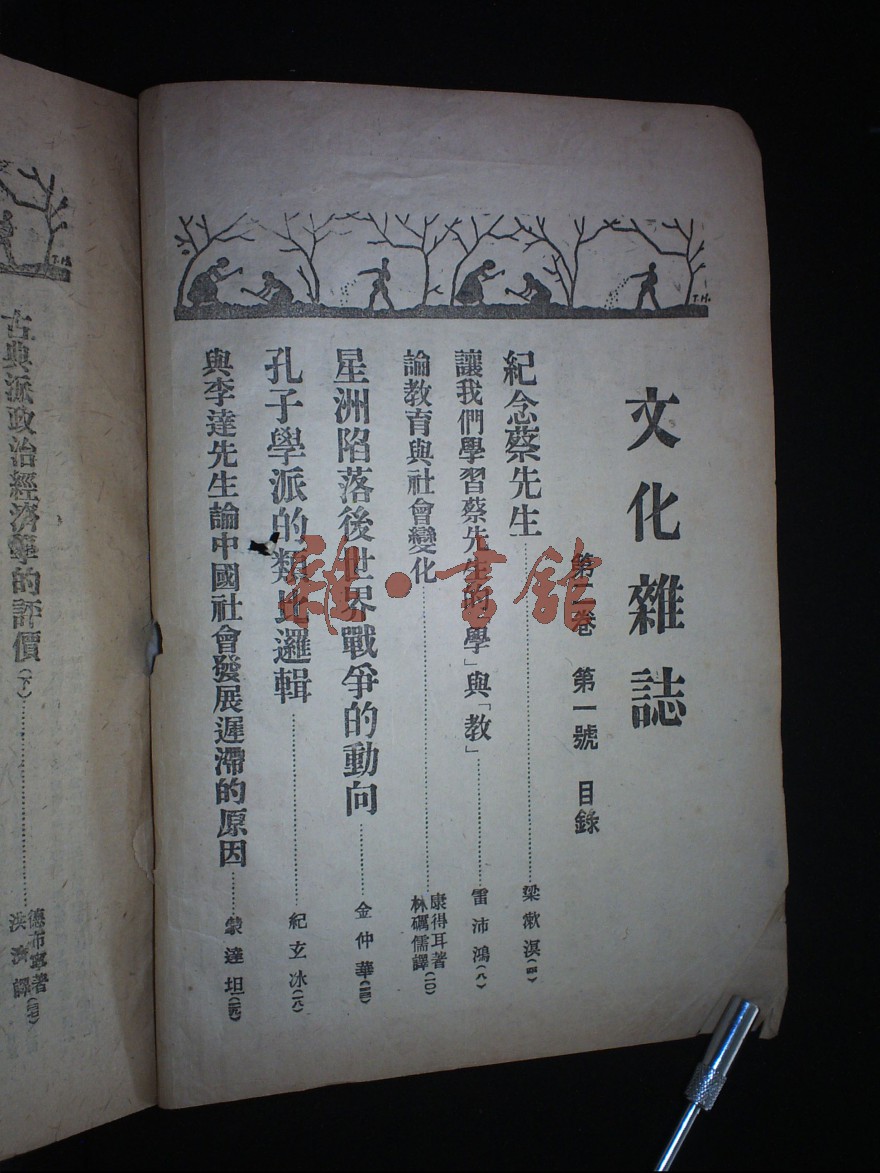 文化雜誌
第二卷 第一號 目錄
紀念蔡先生……梁漱溟(四)
讓我們學習蔡先生的「學」與「教」……雷沛鴻(八)
論教育與社會變化……康得耳著 林礪儒譯(一〇)
星洲陷落後世界戰爭的動向……金仲華
孔子學派的類比邏輯……紀玄冰(一八)
與李達先生論中國社會發展遲滯的原因……蒙達坦
古典派政治經濟學的評價(下)……德布寧著 洪濟譯
雜·書館
T.H.
T.H.